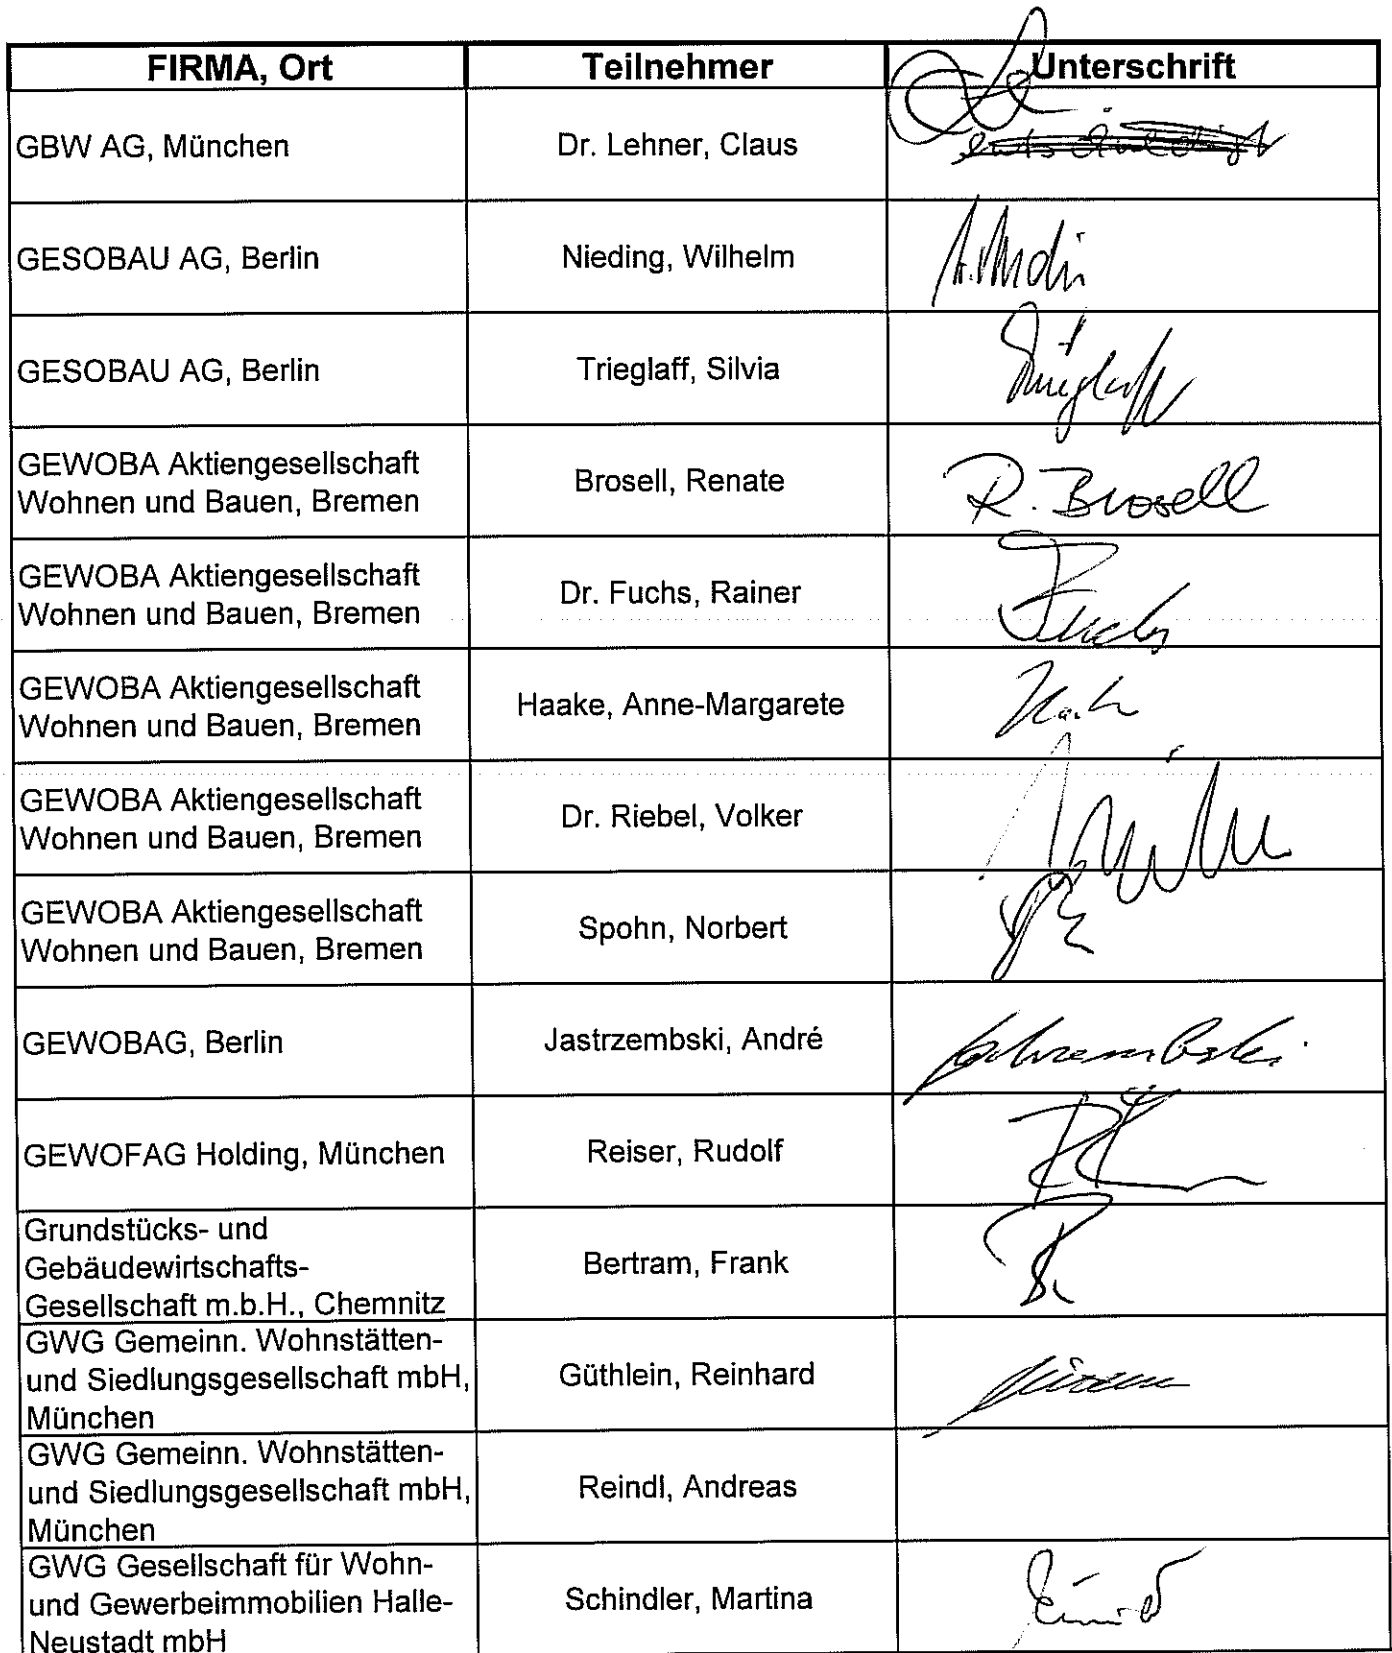 FIRMA, Ort Teilnehmer Unterschrift
GBW AG, München Dr. Lehner, Claus entschuldigt
GESOBAU AG, Berlin Nieding, Wilhelm
GESOBAU AG, Berlin Trieglaff, Silvia Trieglaff
GEWOBA Aktiengesellschaft
Wohnen und Bauen, Bremen
Brosell, Renate R. Brosell
GEWOBA Aktiengesellschaft
Wohnen und Bauen, Bremen
Dr. Fuchs, Rainer Fuchs
GEWOBA Aktiengesellschaft
Wohnen und Bauen, Bremen
Haake, Anne-Margarete
GEWOBA Aktiengesellschaft
Wohnen und Bauen, Bremen
Dr. Riebel, Volker
GEWOBA Aktiengesellschaft
Wohnen und Bauen, Bremen
Spohn, Norbert
GEWOBAG, Berlin Jastrzembski, André Jastrzembski
GEWOFAG Holding, München Reiser, Rudolf
Grundstücks- und
Gebäudewirtschafts-
Gesellschaft m.b.H., Chemnitz
Bertram, Frank
GWG Gemeinn. Wohnstätten-
und Siedlungsgesellschaft mbH,
München
Güthlein, Reinhard
GWG Gemeinn. Wohnstätten-
und Siedlungsgesellschaft mbH,
München
Reindl, Andreas
GWG Gesellschaft für Wohn-
und Gewerbeimmobilien Halle-
Neustadt mbH
Schindler, Martina